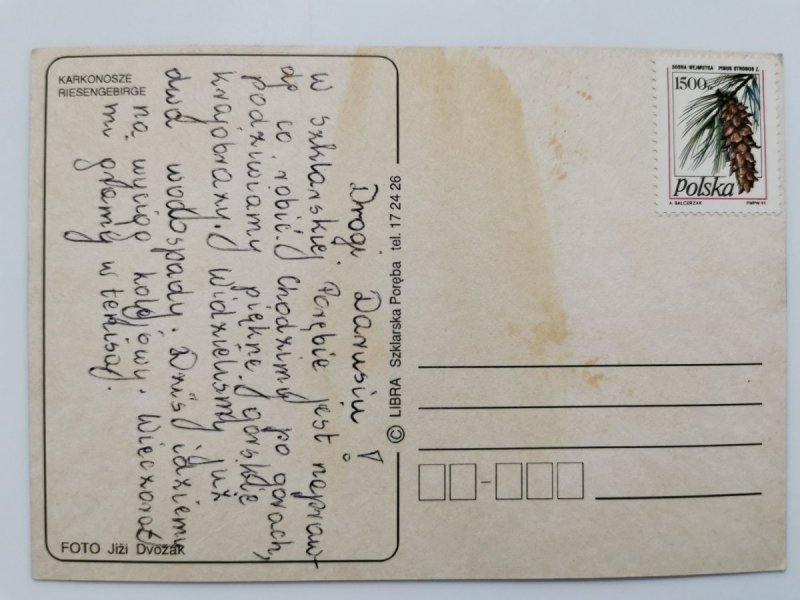 KARKONOSZE
RIESENGEBIRGE
Drogi Darusiu!
w Szklarskiej Porębie jest napraw
dę co robić. Chodzimy po górach,
podziwiamy piękne górskie
krajobrazy. Widzieliśmy już
dwa wodospady. Dziś idziemy
na wyciąg kolejowy. Wieczora
mi gramy w tenisa.
FOTO Jiži Dvožak
© LIBRA Szklarska Poręba tel. 17 24 26
SOSNA WEJMUTKA PINUS STROBUS Z.
1500 zł
Polska
A. BALCERZAK PWPW-93